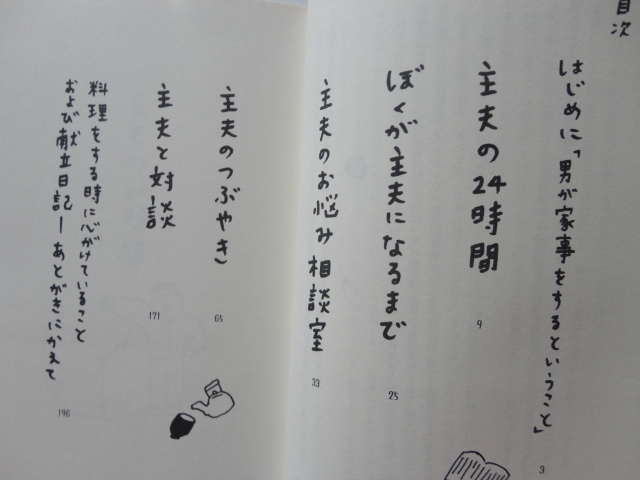 目次
はじめに「男が家事をするということ」
3
主夫の24時間
9
ぼくが主夫になるまで
25
主夫のお悩み相談室
33
主夫のつぶやき
65
主夫と対談
171
料理をする時に心がけていること
および献立日記ーあとがきにかえて
196